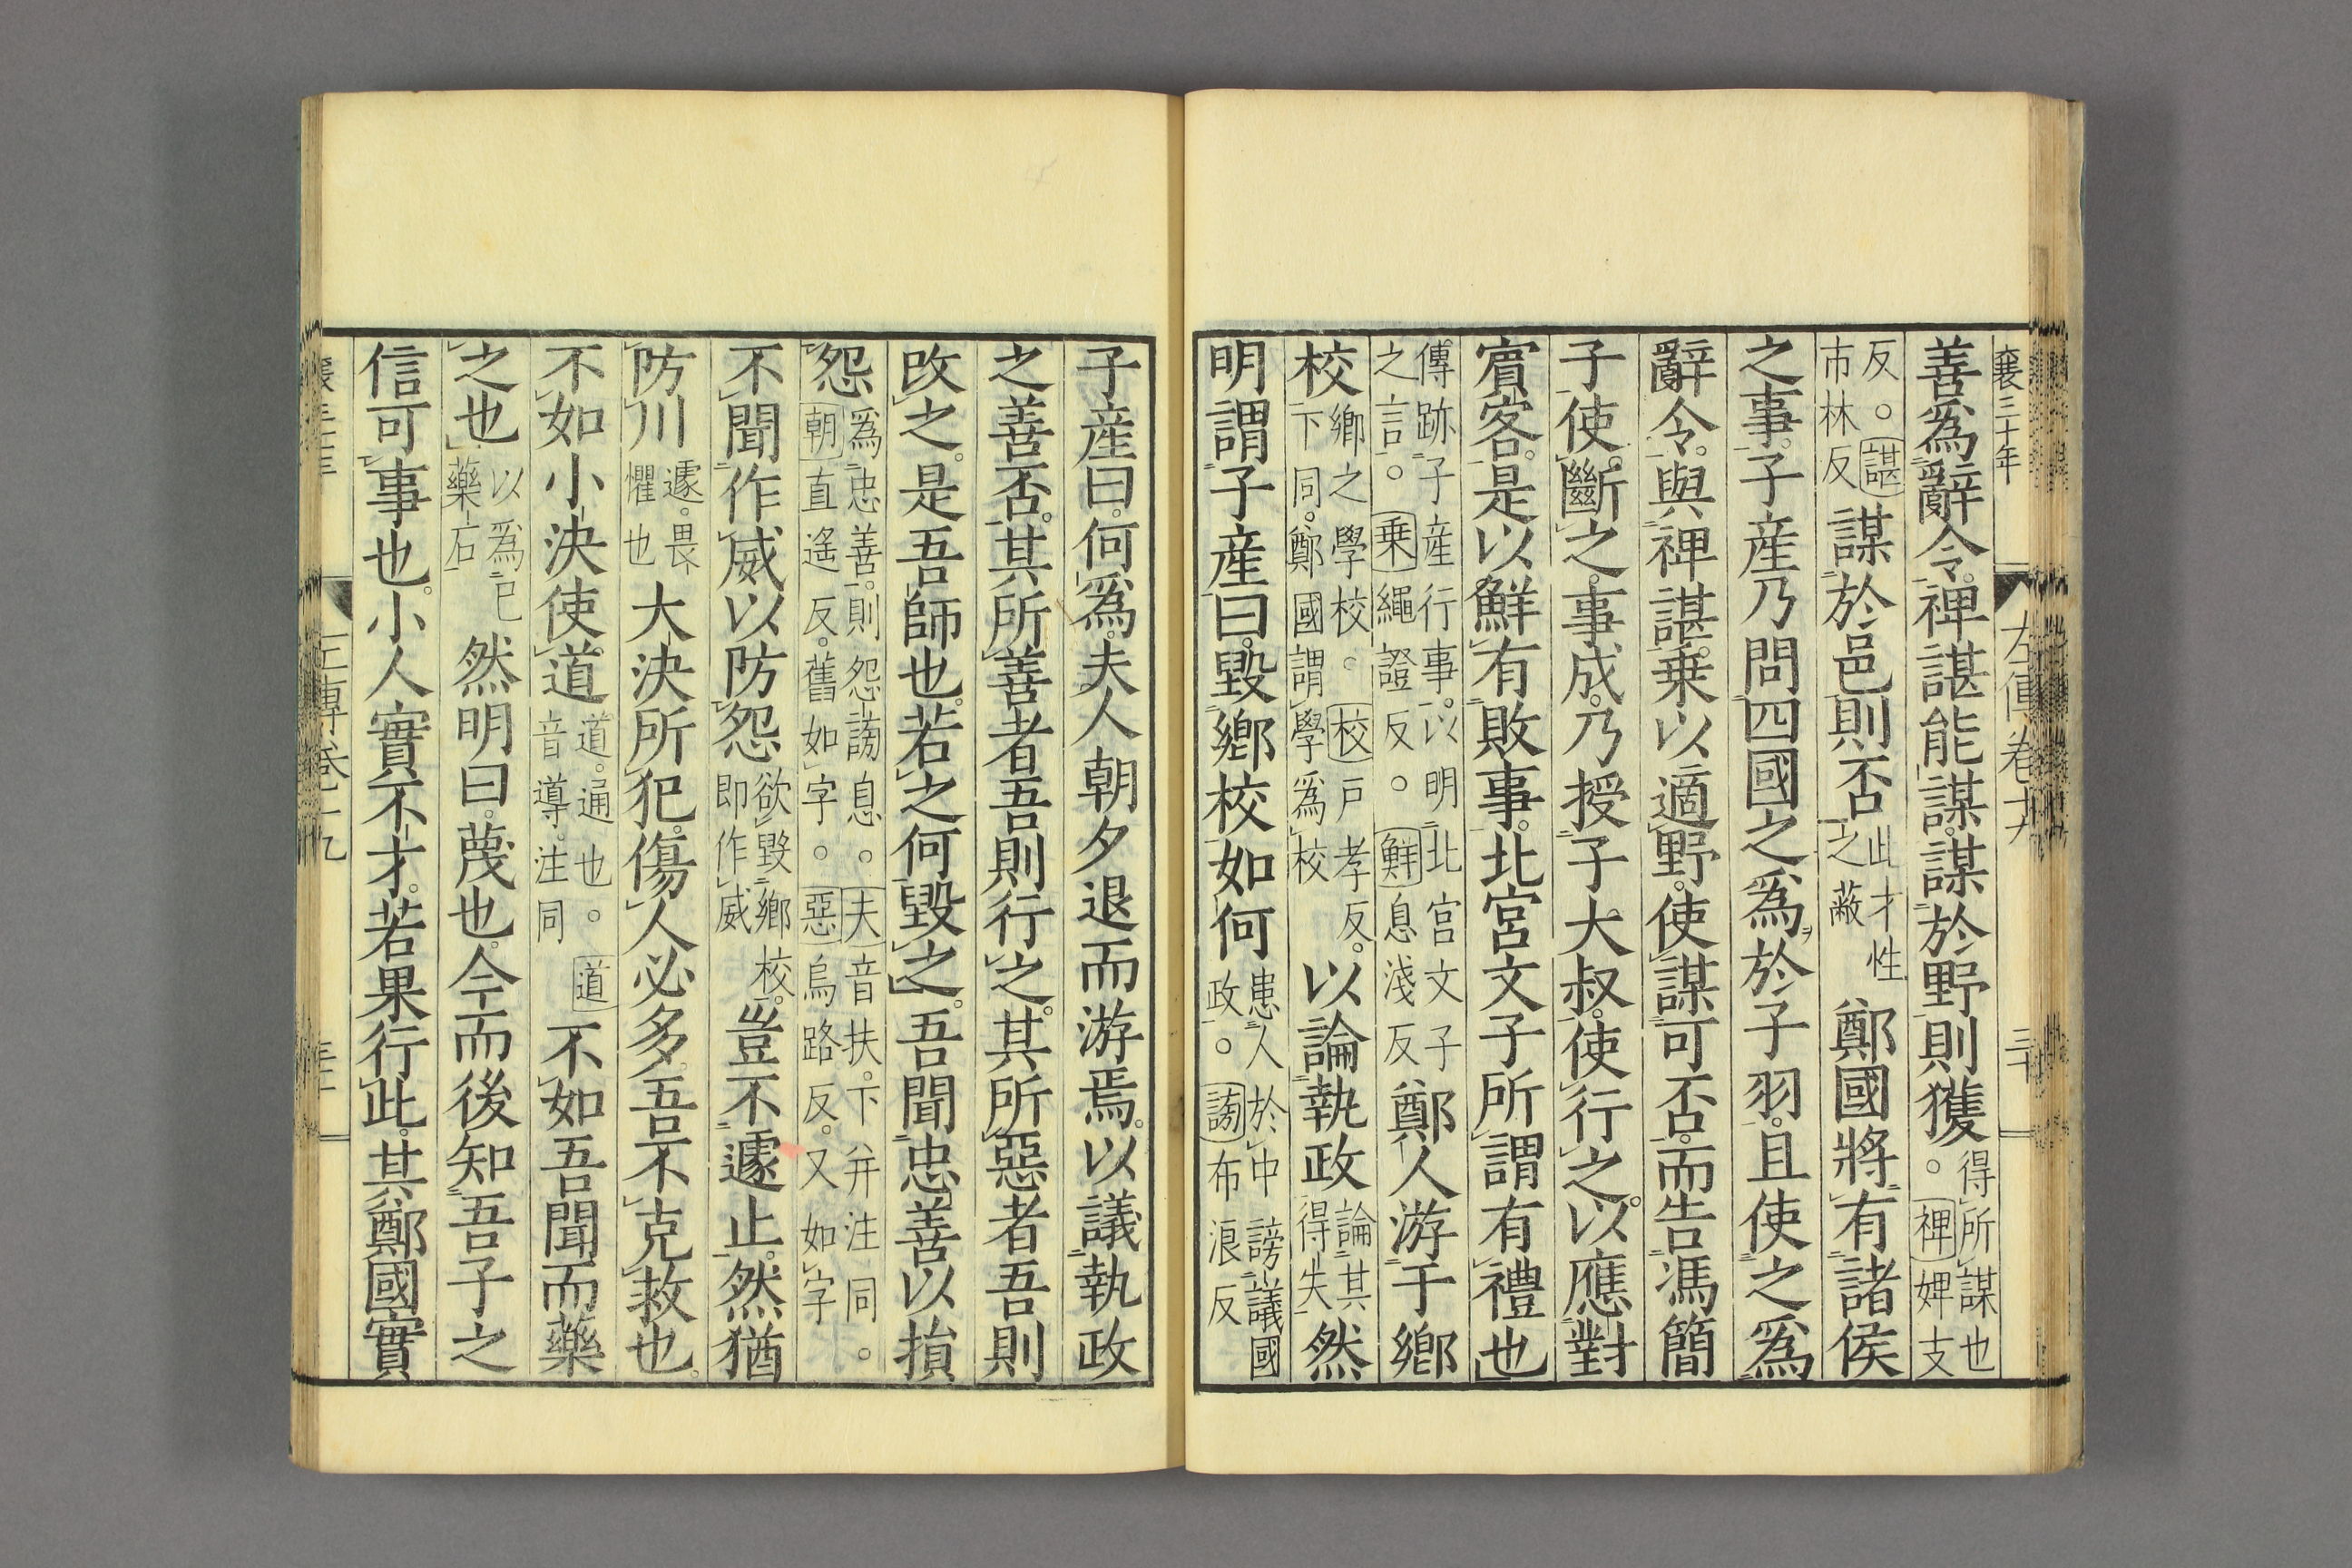 襄三十年
左傳卷十九
三十
善爲辭令。裨諶能謀。謀於野則獲得所謀也。裨婢支
反。諶市林反謀於邑則否此才性之蔽鄭國將有諸侯
之事。子産乃問四國之爲於子羽。且使之爲
辭令。與裨諶。乗以適野。使謀可否。而告馮簡
子使斷之。事成。乃授子大叔。使行之。以應對
賓客。是以鮮有敗事。北宮文子所謂有禮也
傳跡子産行事。以明北宮文子之言。乗繩證反。鮮息淺反鄭人游于鄉
校鄉之學校。校戸孝反。下同。鄭國謂學爲校以論執政論其得失然
明謂子産曰。毀鄉校如何患人於中謗議國政。謗布浪反
子産曰。何爲。夫人朝夕退而游焉。以議執政
之善否。其所善者吾則行之。其所惡者吾則
改之。是吾師也。若之何毀之。吾聞忠善以損
怨爲忠善。則怨謗息。夫音扶。下并注同。朝直遙反。舊如字。惡烏路反。又如字
不聞作威以防怨欲毀鄉校。即作威豈不遽止。然猶
防川遽。畏懼也大決所犯。傷人必多。吾不克救也。
不如小決使道道。通也。道音導。注同不如吾聞而藥
之也以爲己藥石然明曰。蔑也。今而後知吾子之
信可事也。小人實不才。若果行此。其鄭國實